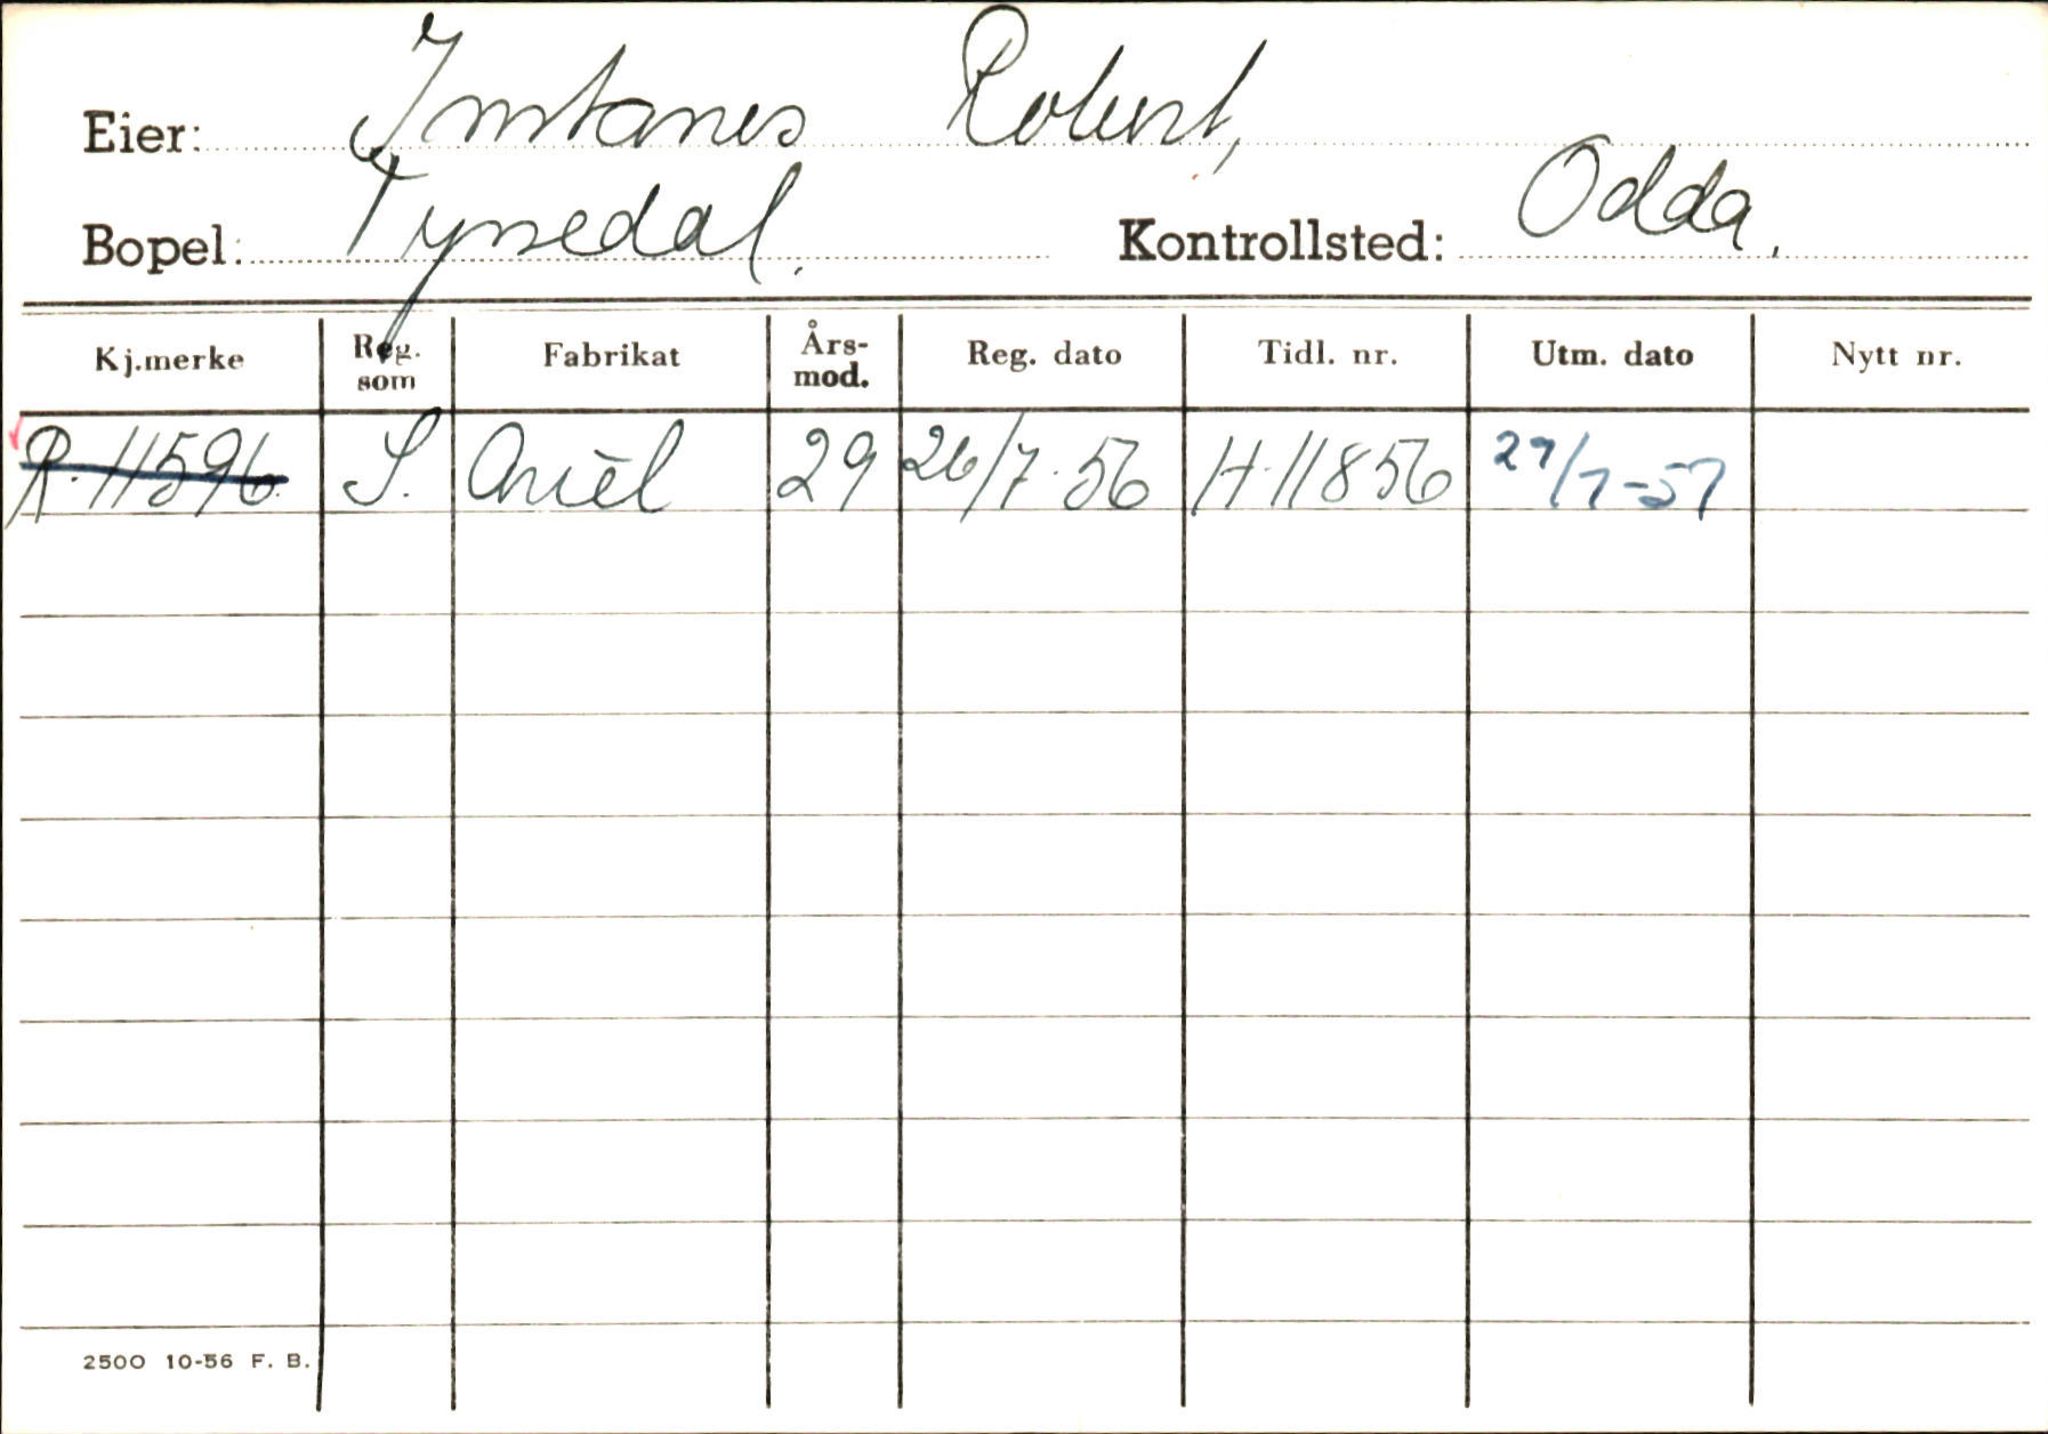 Eier: Instanes Robert,
Bopel: Tyssedal. Kontrollsted: Odda.
Kj.merke Reg. som Fabrikat Års-mod. Reg. dato Tidl. nr. Utm. dato Nytt nr.
R.11596. S. Ariel 29 26/7.56 H.11856 27/7-57
2500 10-56 F. B.